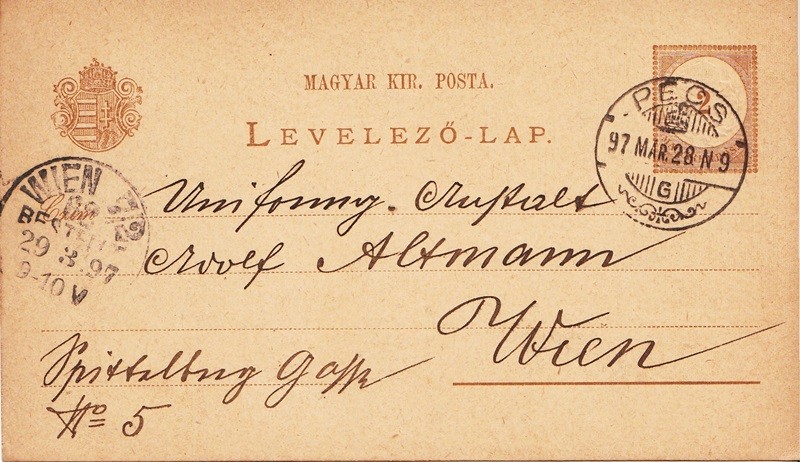 MAGYAR KIR. POSTA.
LEVELEZŐ-LAP.
2
PÉCS
97 MÁR. 28 N 9
G
WIEN
BESTELLT
29 3. 97
9-10 V
Czím
Uniformg. Anstalt
Adolf Altmann
Wien
Spittelbrg Gasse
No 5